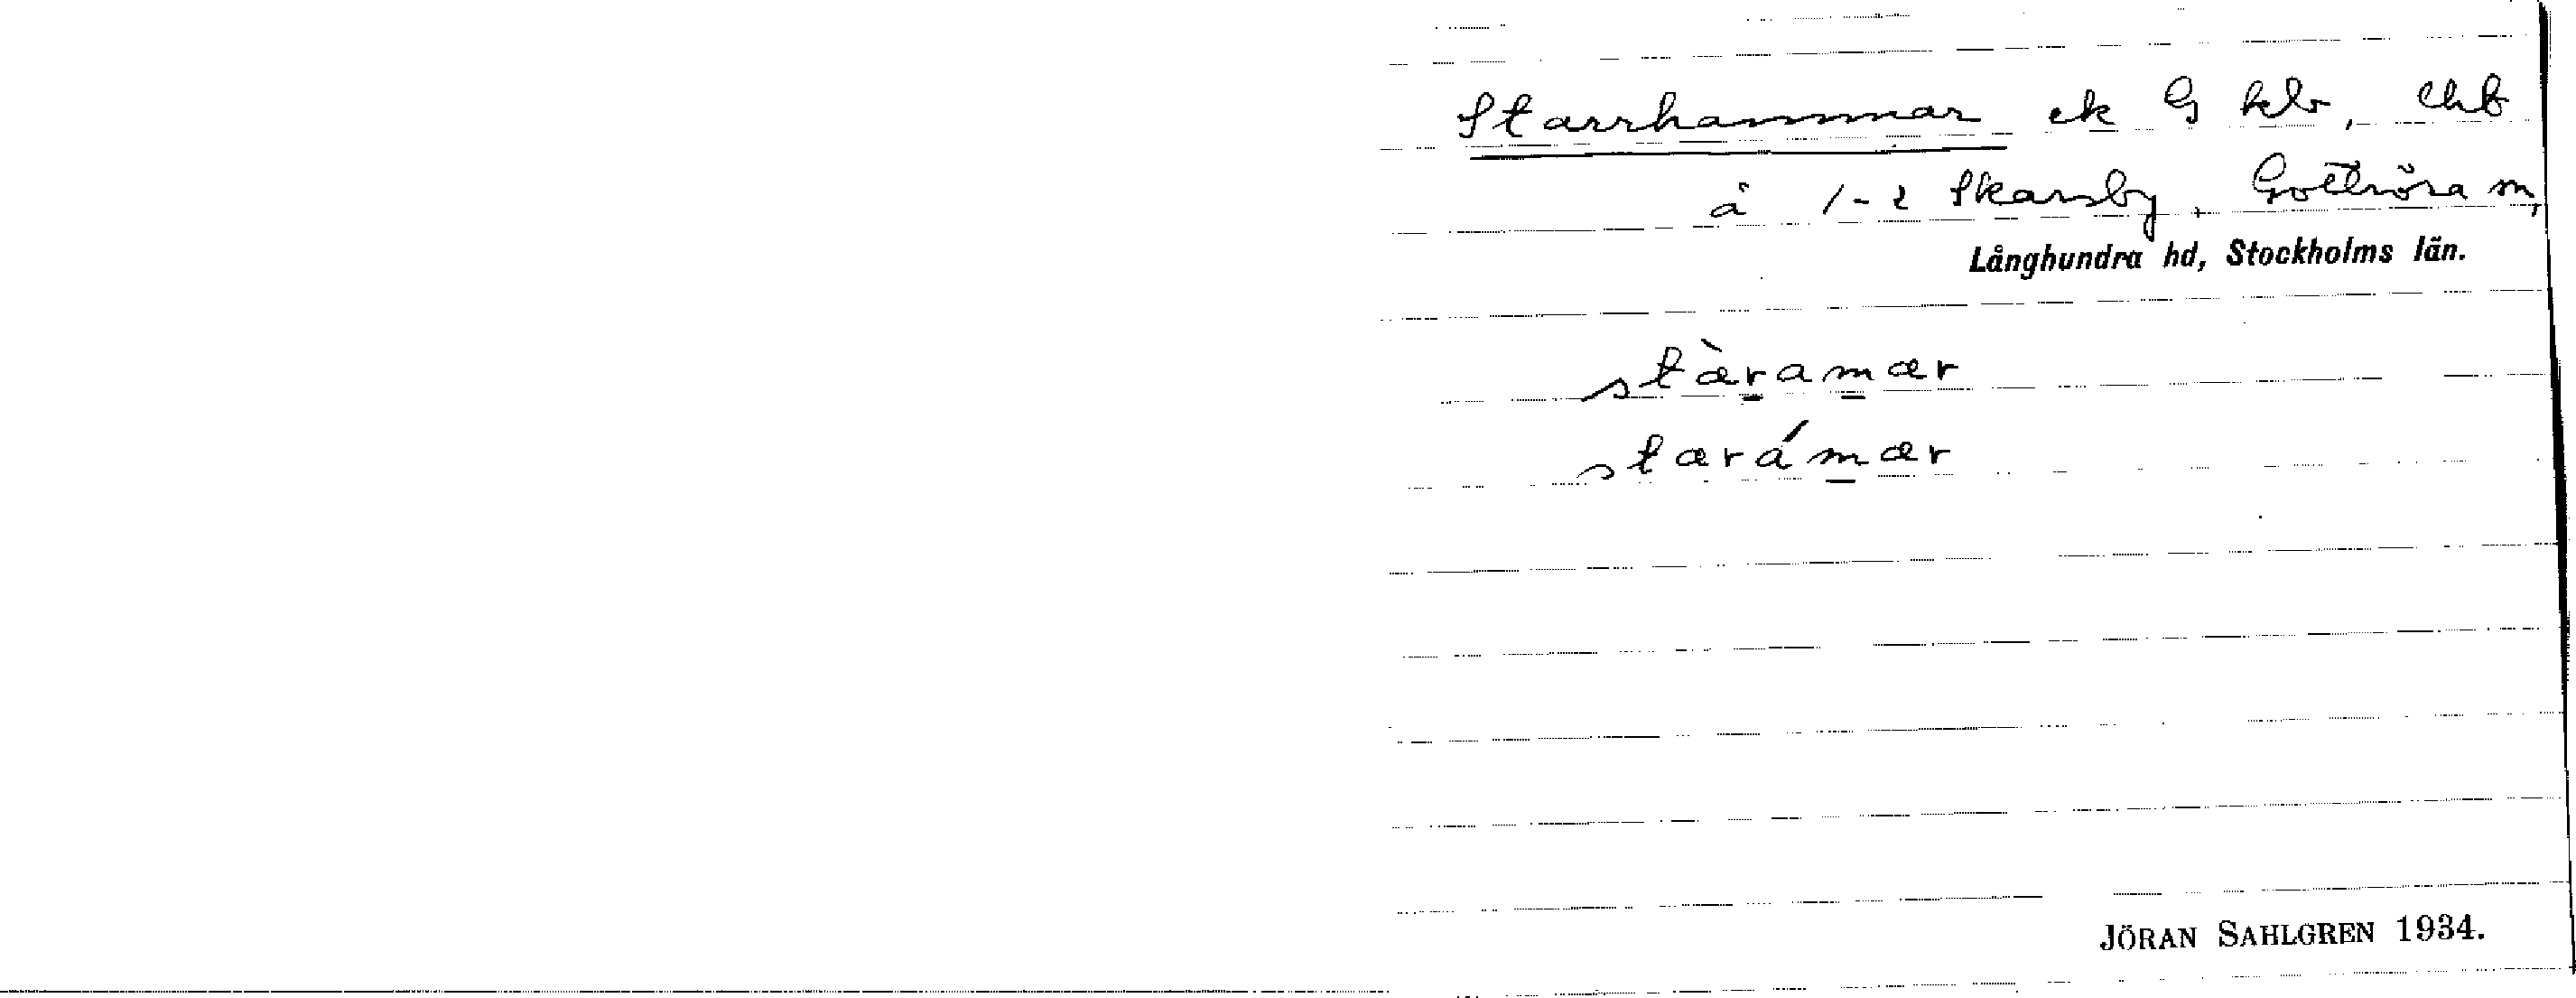 Starrhammar ek G klv, chb
å 1-2 Skarsby, Gottröra sn,
Långhundra hd, Stockholms län.
stæ̀ramær
stærámær
JÖRAN SAHLGREN 1934.